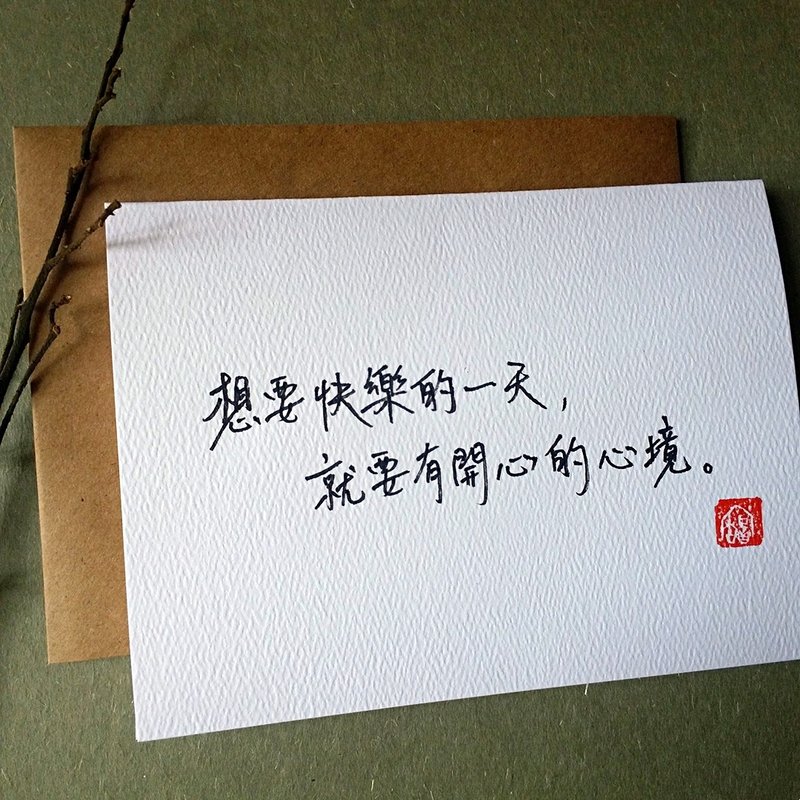 想要快樂的一天，
就要有開心的心境。